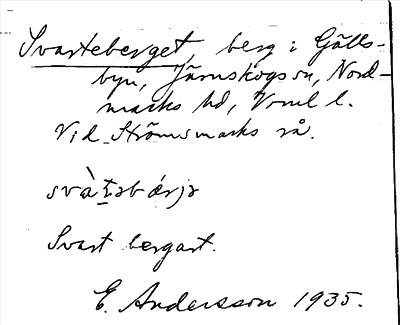 Svarteberget, berg i Gälls-
byn, Järnskogs sn, Nord-
marks hd, Vrml l.
Vid Strömsmarks rå.
svàt̠əbǽrjə
Svart bergart.
E. Andersson 1935.